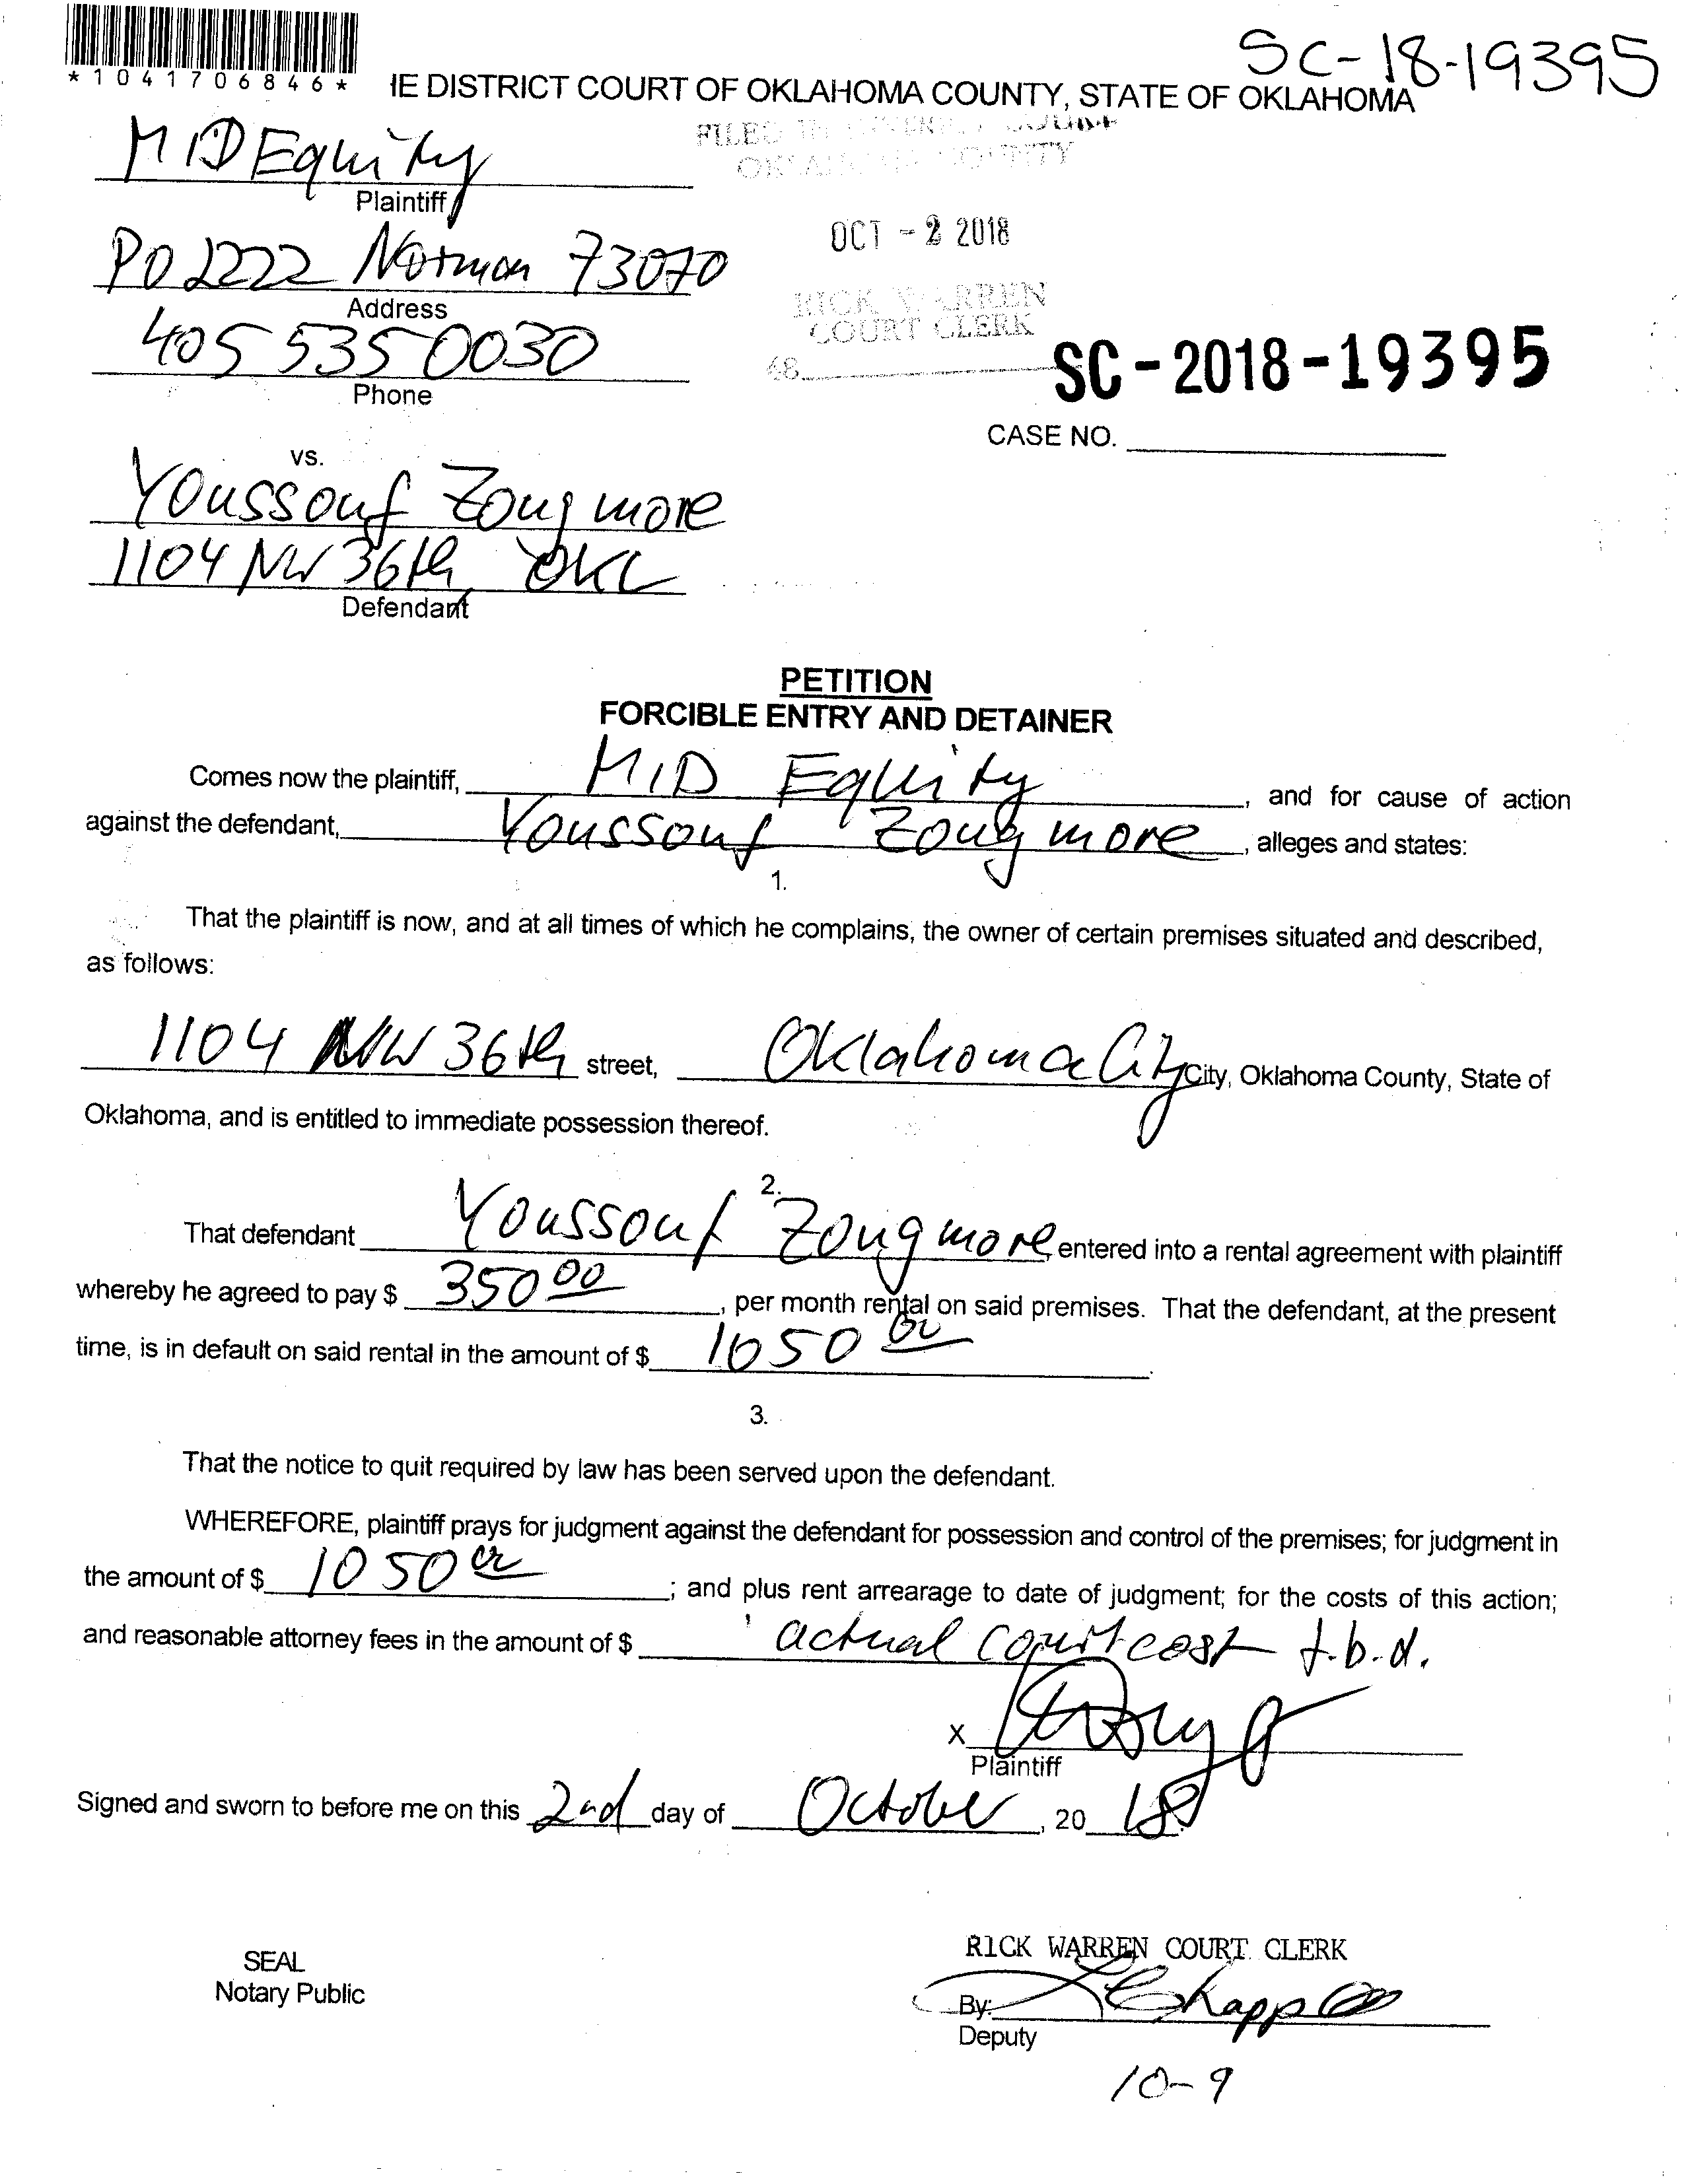 SC-18-19395
*1041706846*
IE DISTRICT COURT OF OKLAHOMA COUNTY, STATE OF OKLAHOMA
MID Equity
FILED IN COURT
Plaintiff
OKLAHOMA COUNTY
PO 2222 Norman 73070
OCT - 2 2018
Address
RICK WARREN
COURT CLERK
405 535 0030
48
SC-2018-19395
Phone
CASE NO.
vs.
Youssouf Zougmore
1104 NW 36th OKC
Defendant
PETITION
FORCIBLE ENTRY AND DETAINER
Comes now the plaintiff, MID Equity, and for cause of action
against the defendant, Youssouf Zougmore, alleges and states:
1.
That the plaintiff is now, and at all times of which he complains, the owner of certain premises situated and described,
as follows:
1104 NW 36th street, Oklahoma City City, Oklahoma County, State of
Oklahoma, and is entitled to immediate possession thereof.
2.
That defendant Youssouf Zougmore entered into a rental agreement with plaintiff
whereby he agreed to pay $ 350 00, per month rental on said premises. That the defendant, at the present
time, is in default on said rental in the amount of $ 1050 00.
3.
That the notice to quit required by law has been served upon the defendant.
WHEREFORE, plaintiff prays for judgment against the defendant for possession and control of the premises; for judgment in
the amount of $ 1050 00; and plus rent arrearage to date of judgment; for the costs of this action;
and reasonable attorney fees in the amount of $ actual court cost t.b.d.
X
Plaintiff
Signed and sworn to before me on this 2nd day of October, 20 18
SEAL
Notary Public
RICK WARREN COURT CLERK
By:
Deputy
10-9